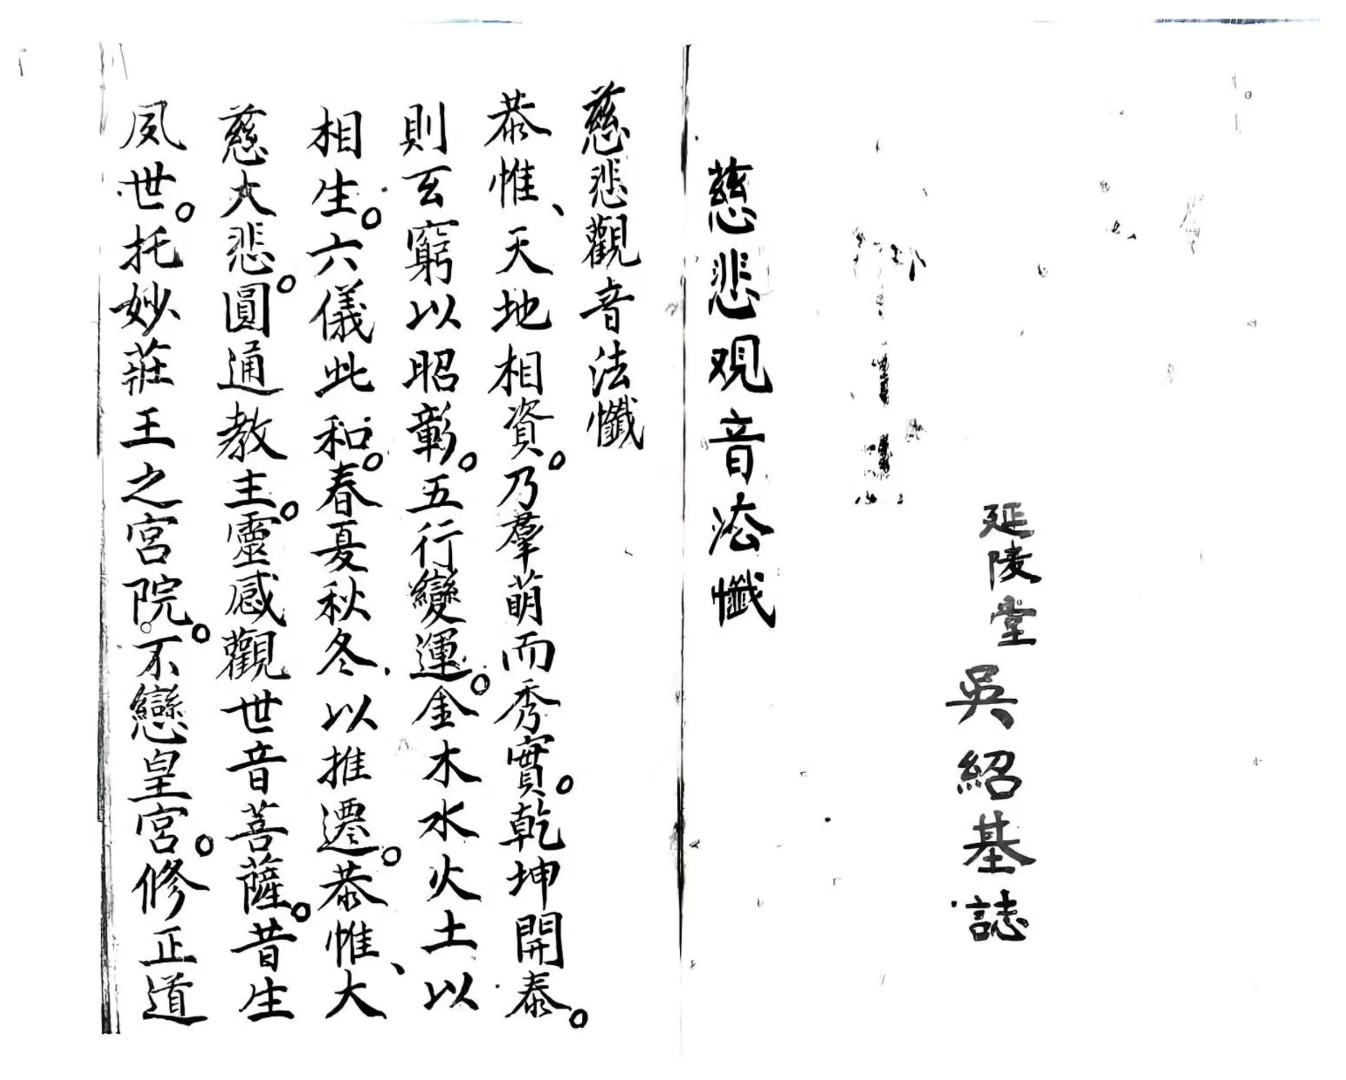 延陵堂 吳紹基誌
慈悲观音法懺
慈悲觀音法懺
恭惟、天地相資。乃羣萌而秀實。乾坤開泰。
則玄窮以昭彰。五行變運。金木水火土以
相生。六儀此和。春夏秋冬、以推遷。恭惟、大
慈大悲。圓通教主。靈感觀世音菩薩。昔生
夙世。托妙莊王之宮院。不戀皇宮。修正道